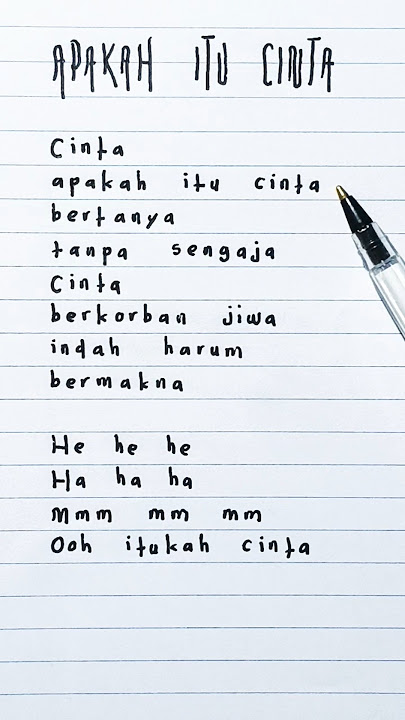 APAKAH ITU CINTA
Cinta
apakah itu cinta
bertanya
tanpa sengaja
Cinta
berkorban jiwa
indah harum
bermakna
He he he
Ha ha ha
Mmm mm mm
Ooh itukah cinta